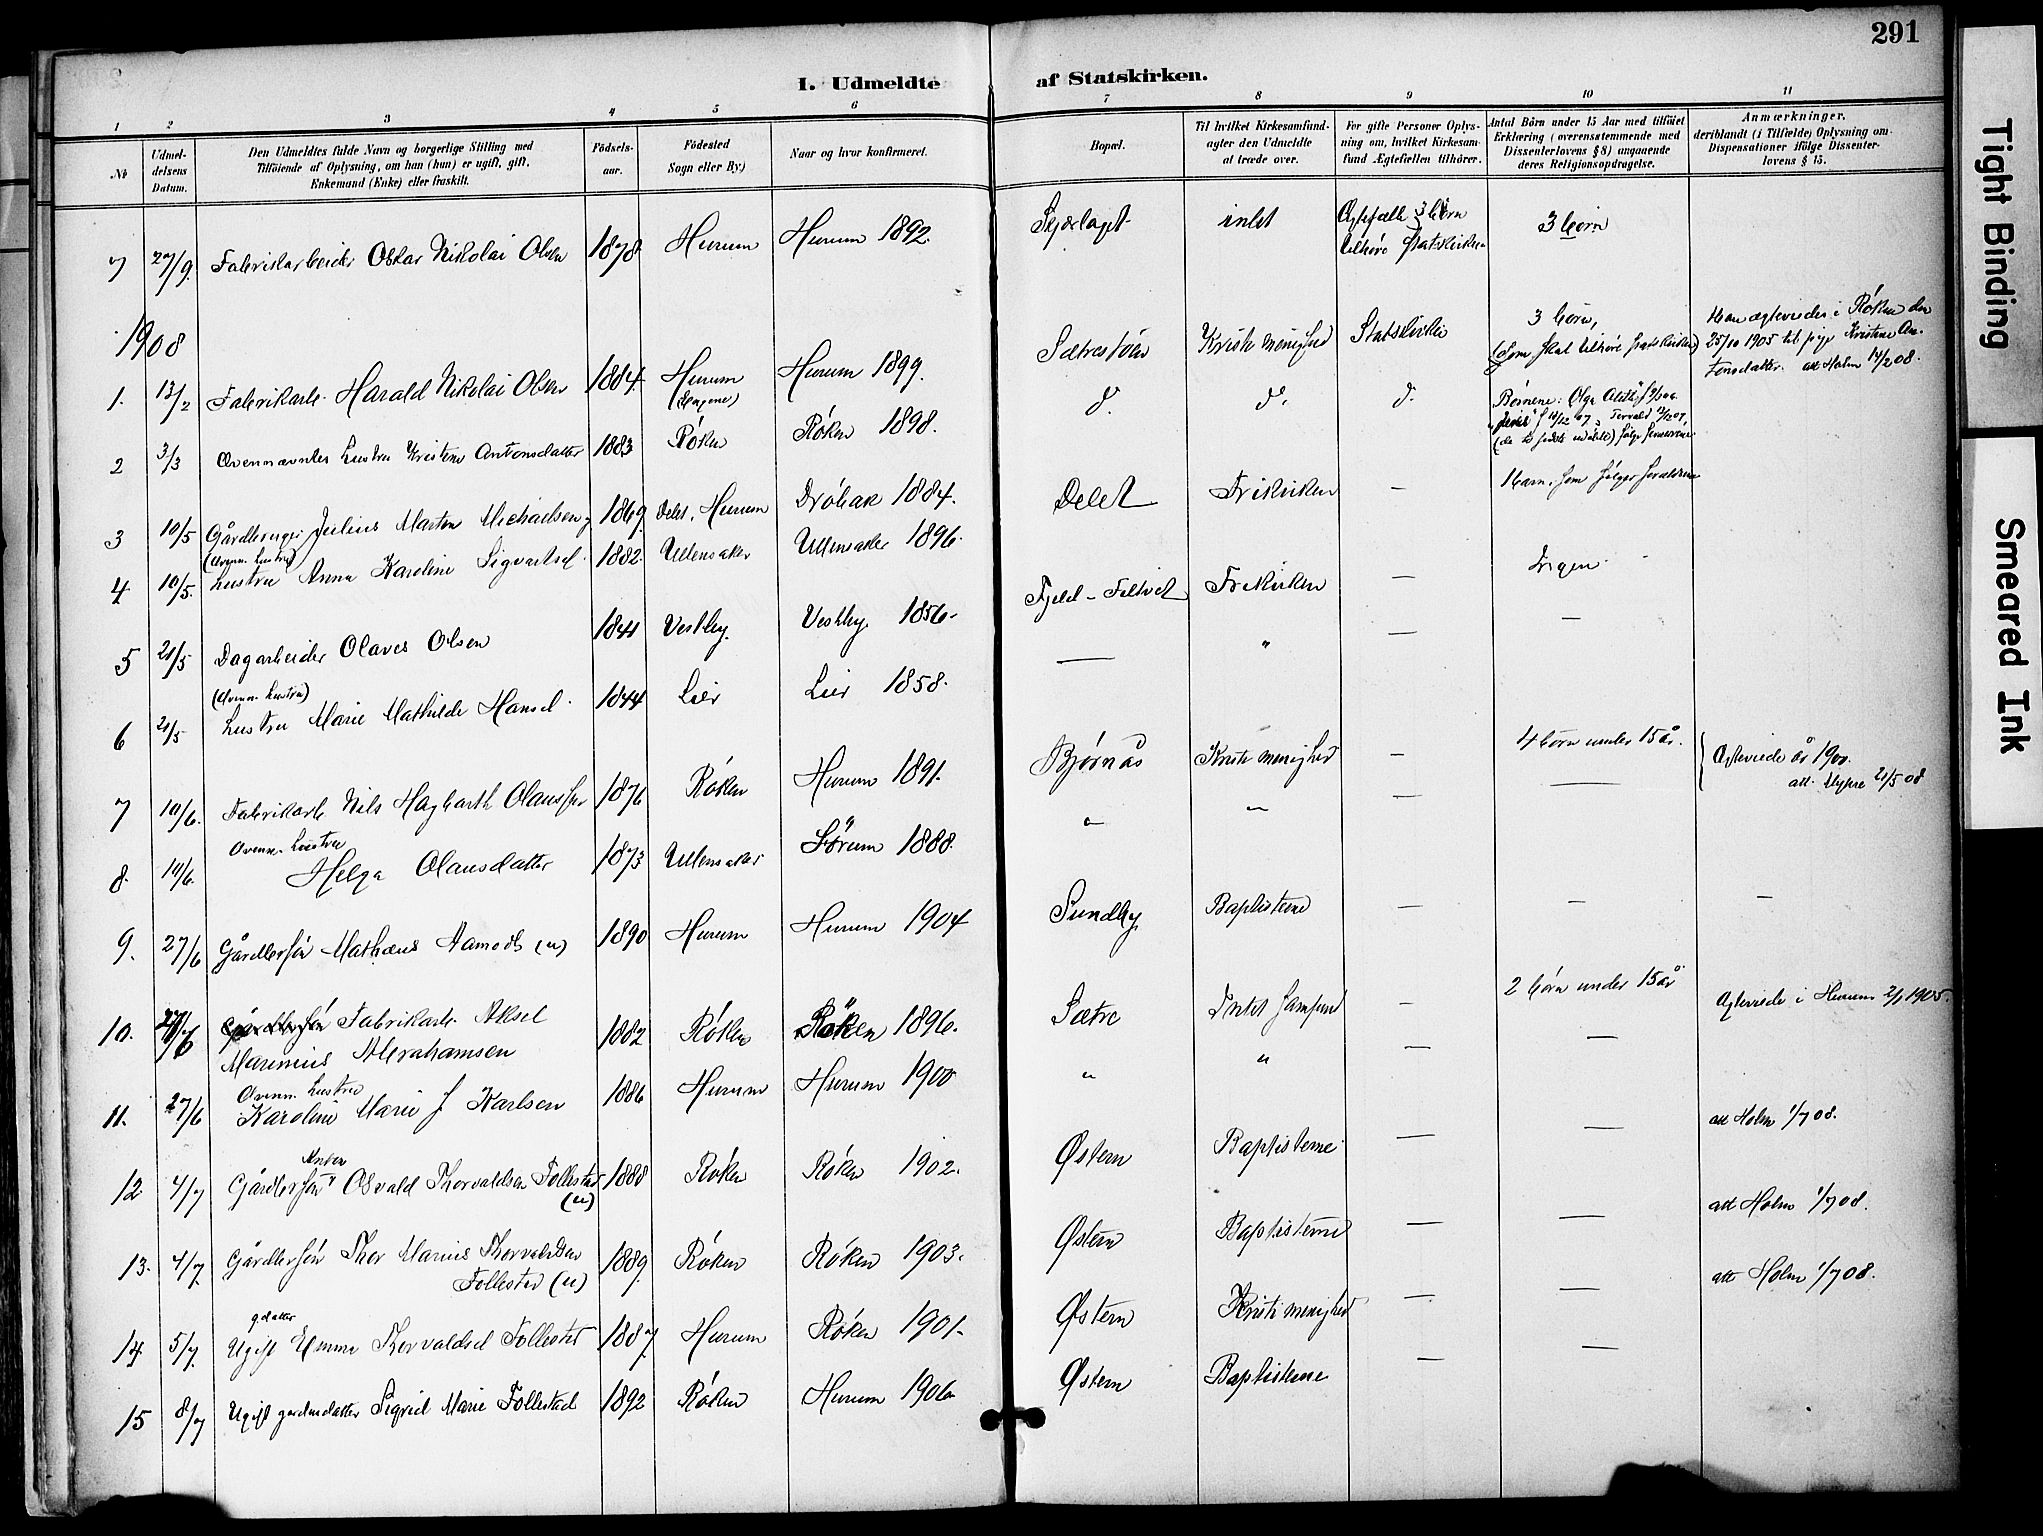 291
I. Udmeldte af Statskirken.
1 2 3 4 5 6 7 8 9 10 11
No
Udmeldelsens Datum.
Den Udmeldtes fulde Navn og borgerlige Stilling med
Tilföiende af Oplysning, om han (hun) er ugift, gift,
Enkemand (Enke) eller fraskilt.
Födselsaar.
Födested
Sogn eller By.)
Naar og hvor konfirmeret.
Bopæl.
Til hvilket Kirkesamfund
agter den Udmeldte
at træde over.
For gifte Personer Oplys-
ning om, hvilket Kirkesam-
fund Ægtefællen tilhörer.
Antal Börn under 15 Aar med tilföiet
Erklæring (overensstemmende med
Dissenterlovens § 8) angaaende
deres Religionsopdragelse.
Anmærkninger,
deriblandt (i Tilfælde) Oplysning om
Dispensationer ifölge Dissenter-
lovens § 15.
7 27/9. Fabrikarbeider Oskar Nikolai Olsen 1878 Hurum Hurum 1892. intet Ægtefælle 3 börn tilhöre statskirken 3 börn
1908
1. 13/2 Fabrikarb. Harald Nikolai Olsen 1884 Hurum Hurum 1899. Kristi menighed Statskirke 3 börn, (som skal tilhöre statskirken) Han ægteviedes i Röken den 25/10 1905 til pige Kristine An- tonsdatter. att Holm 14/2 08.
2 3/3 Ovennævntes hustru Kristine Antonsdatter 1883 Röken Röken 1898. d. d. d. Börnene: Olga
3 10/5 Gårdbruger Julius Marten Michaelsen 1869 Delet, Hurum Dröbak 1884. Delet Frikirken — 1 barn, som fölger forældrene
4 10/5. (Ovenn. hustru) hustru Anna Karoline Sigvartsd. 1882. Ullensaker Ullensaker 1896. Fjeld - Filtvet Frikirken — Ingen.
5 21/5 Dagarbeider Olaves Olsen 1841 Vestby Vestby 1856. — " — —
6 21/5 (Ovenn. hustru) hustru Marie Mathilde Hansd. 1844 Lier Lier 1858.
7 10/6. Fabrikarb Nils Hagbarth Olaussen 1876 Röken Hurum 1891. Bjørnås Kristi menighed — 4 börn under 15 år. Ægteviede år 1900. att. 21/5 08
8. 10/6. Ovenn. hustru Helga Olausdatter 1873 Ullensaker Sörum 1888. " " — —
9. 27/6 Gårdbrsön Mathæus Aamodt (u) 1890 Hurum Hurum 1904 Sundby Baptisterne — — —
10. 27/6 Fabrikarb. Aksel Marinius Abrahamsen 1882 Röken Röken 1896. Sætre Intet samfund — 2 börn under 15 år Ægteviede i Hurum 2/1 1905.
11. 27/6 Ovenn. hustru Karoline Marie J. Karlsen 1886 Hurum Hurum 1900 " " — —
12 4/7 Gårdbrsön Anton Osvald Thorvaldsen Follestad (u) 1888 Röken Röken 1902. Østern Baptisterne — — att Holm 1/7 08.
13. 4/7. Gårdbrsön Thor Marius Thorvaldsen Follestad (u) 1889 Röken Röken 1903. Østern Baptisterne — — att Holm 1/7 08.
14 5/7. Ugift gdatter Emma Thorvaldsd Follestad 1887 Hurum Röken 1901. Østern Kristi menighed — — att Holm 1/7 08.
15 8/7 Ugift gardmdatter Sigrid Marie Follestad 1892 Röken Hurum 1906 Østern Baptisterne — —
Tight Binding
Smeared Ink